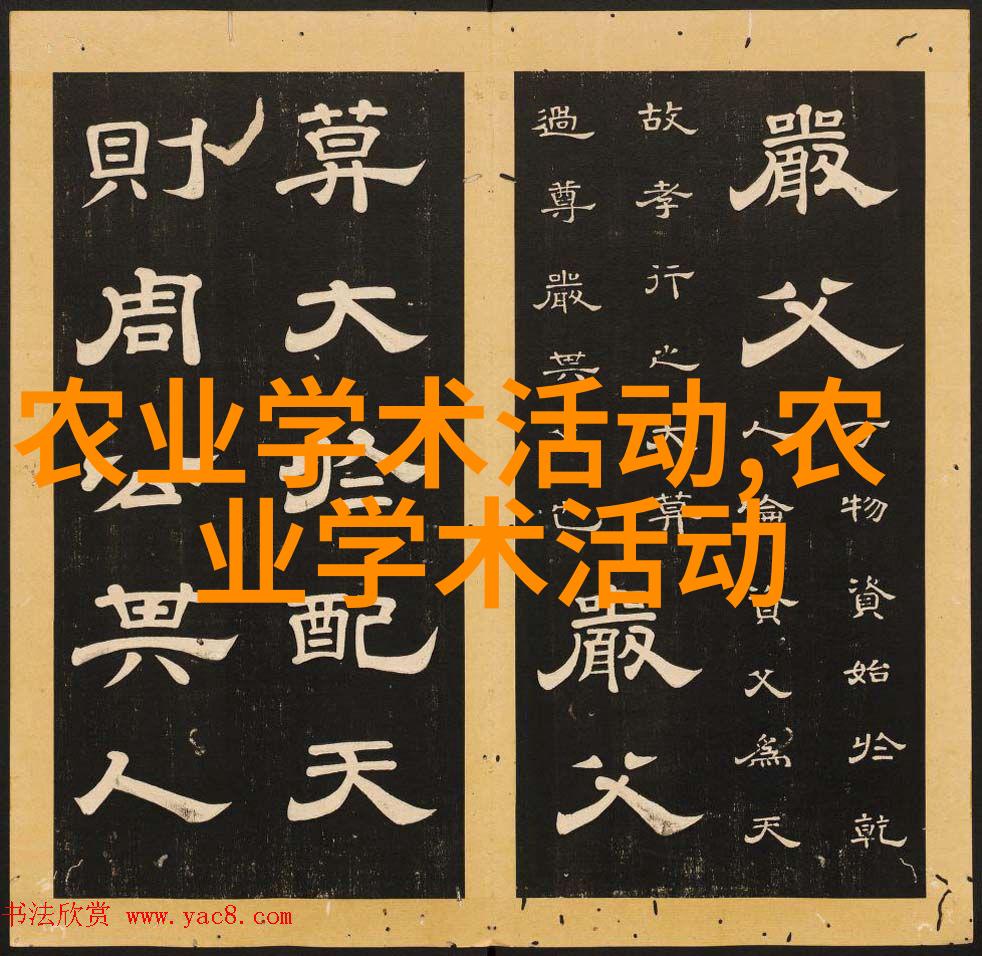 嚴父
物資始於乾
人倫資父為天
故孝行之莫
過尊嚴其也
嚴父
莫大於配天
則周公其人
农业学术活动,农
业学术活动
书法欣赏 www.yac8.com